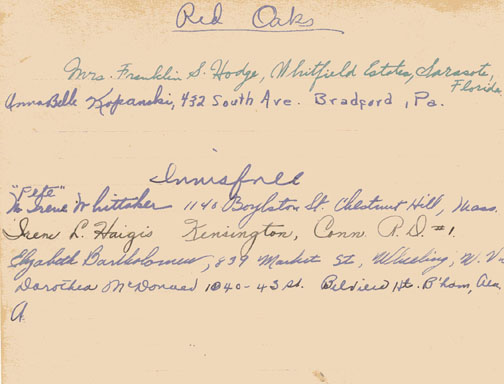 Red Oaks
Mrs. Franklin S. Hodge, Whitfield Estates, Sarasota,
Florida
AnnaBelle Kopanski, 432 South Ave. Bradford, Pa.
Innisfree
"Pete"
Irene Whittaker 1140 Boylston St. Chestnut Hill, Mass.
Irene L. Haigis Kensington, Conn R.D. #1.
Elizabeth Bartholomew, 839 Market St, Wheeling, W. Va
Dorothea McDonald 1040-43 St. Belview Ht. B'ham, Ala.
A